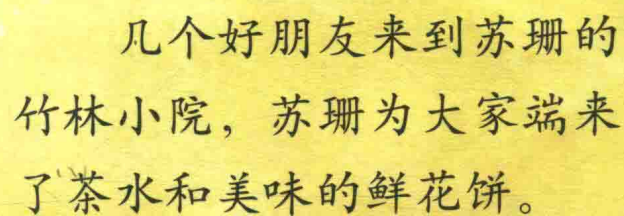 几个好朋友来到苏珊的
竹林小院，苏珊为大家端来
了茶水和美味的鲜花饼。